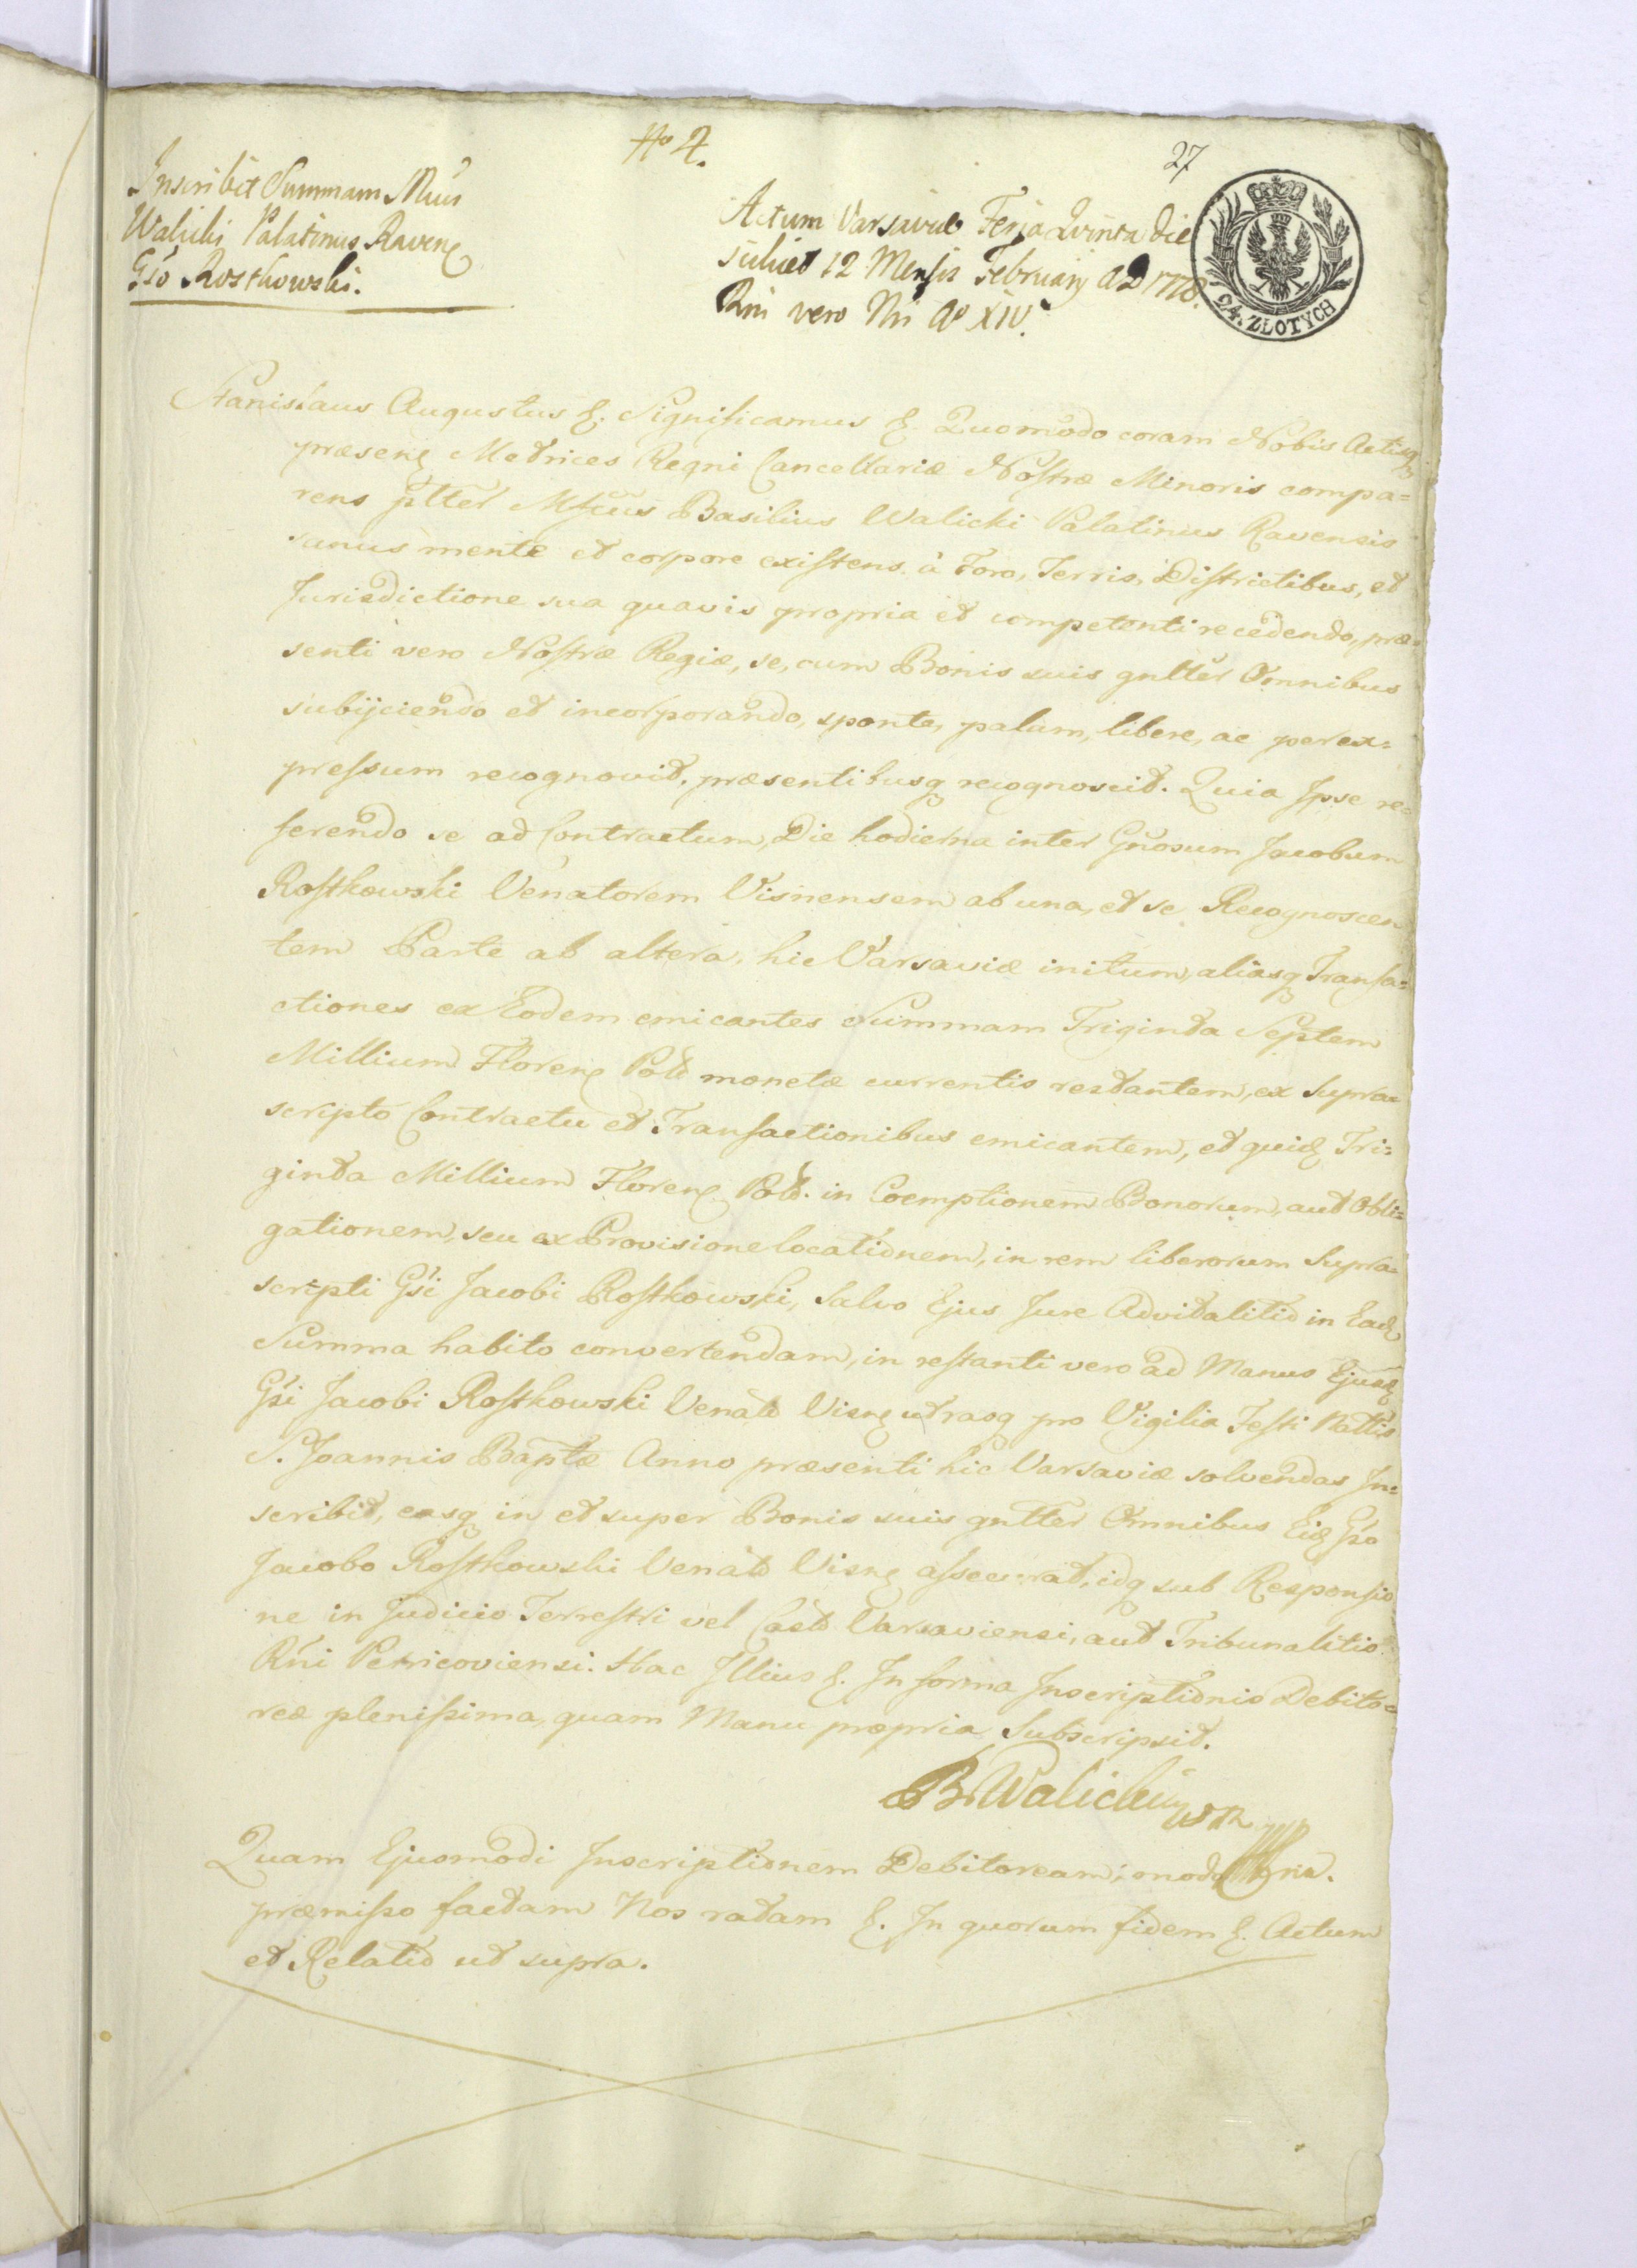 No 4.
27
Inscribit Summam Mcus
Walicki Palatinus Ravenę
Gso Rostkowski.
Actum Varsaviæ Feria Quinta die
scilicet 12 Mensis Februarij AD 1778.
Rni vero Nri Ao XIV.
24. ZŁOTYCH
Stanislaus Augustus &. Significamus &. Quomodo coram Nobis Actisq
præsenę Metrices Regni Cancellariæ Nostræ Minoris compa=
rens pltter Mfcus Basilius Walicki Palatinus Ravensis
sanus mente et corpore existens à Foro, Terris, Districtibus, et
Jurisdictione sua quavis propria et competenti recedendo, præ=
senti vero Nostræ Regiæ, se, cum Bonis suis gnltter Omnibus
subijciendo et incorporando, sponte, palam, libere, ac per ex=
pressum recognovit, præsentibusq recognoscit. Quia Ipse re=
ferendo se ad Contractum, Die hodierna inter Gnosum Jacobum
Rostkowski Venatorem Visnensem ab una, et se Recognoscen
tem Parte ab altera, hic Varsaviæ initum, aliasq Transa=
ctiones ex Eodem emicantes Summam Triginta Septem
Millium Florenę Pold monetæ currentis restantem, ex Supra=
scripto Contractu et Transactionibus emicantem, et quidę Tri=
ginta Millium Florenę Pold. in Coemptionem Bonorum, aut Obli=
gationem, seu ex Provisione locationem, in rem liberorum Supra=
scripti Gsi Jacobi Rostkowski, Salvo Ejus Jure Advitalitio in Eadę
Summa habito convertendam, in restanti vero ad Manus Ejusdę
Gsi Jacobi Rostkowski Venatd Visnę utrasq pro Vigilia Festi Nattis
S. Joannis Baptæ Anno præsenti hic Varsaviæ solvendas In=
scribit, easq in et super Bonis suis gnltter Omnibus Eidę Gso
Jacobo Rostkowski Venatd Visnę assecurat, idq sub Responsio
ne in Judicio Terrestri vel Castd Varsaviensi, aut Tribunalitio
Rni Petricoviensi. Hac Illius &. In forma Inscriptionis Debito=
reæ plenissima, quam Manu propria Subscripsit.
B. Walicki WR
Quam Ejusmodi Inscriptionem Debitoream, modo
præmisso factam Nos ratam &. In quorum fidem &. Actum
et Relatio ut supra.